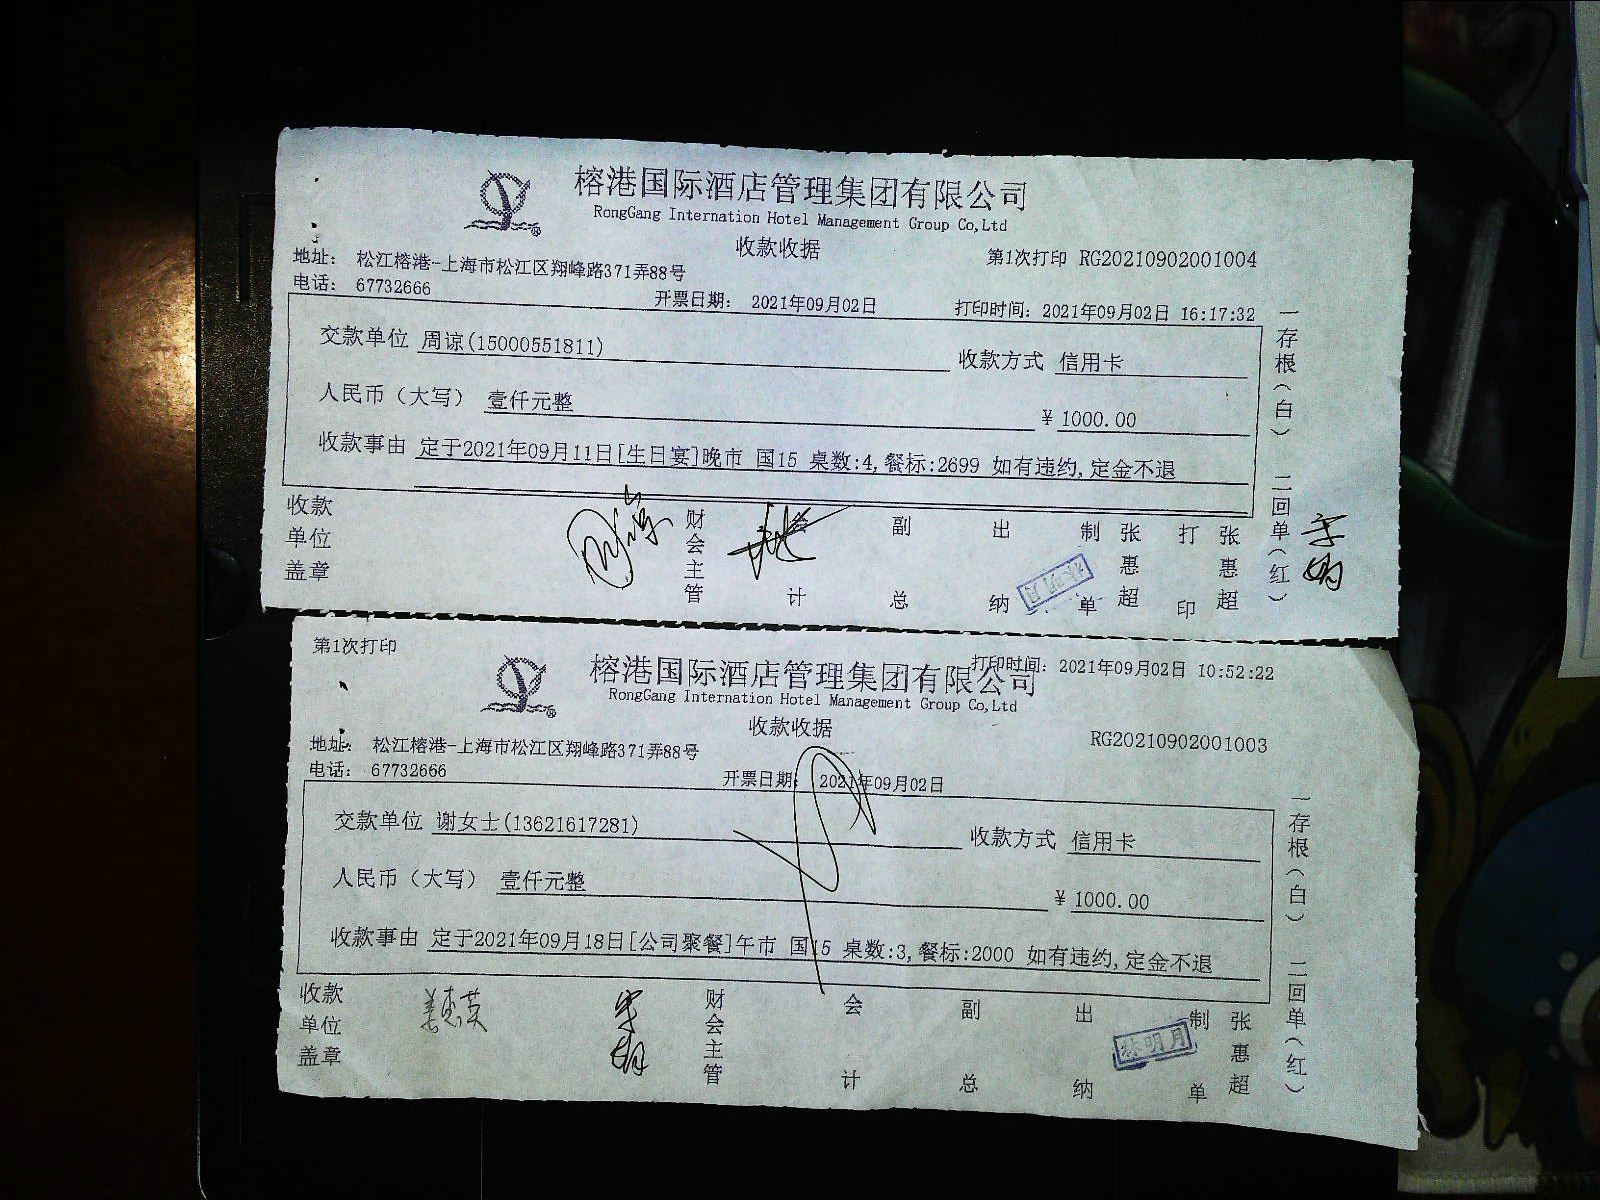 榕港国际酒店管理集团有限公司
RongGang Internation Hotel Management Group Co,Ltd
收款收据
第1次打印 RG20210902001004
地址： 松江榕港-上海市松江区翔峰路371弄88号
电话： 67732666
开票日期： 2021年09月02日
打印时间： 2021年09月02日 16:17:32
交款单位 周谅(15000551811)
收款方式 信用卡
人民币（大写） 壹仟元整
￥ 1000.00
收款事由 定于2021年09月11日[生日宴]晚市 国15 桌数:4,餐标:2699 如有违约,定金不退
收款单位盖章
财会主管
会计
副总
出纳
制单
张惠超
打印
张惠超
一存根（白） 二回单（红）
第1次打印
榕港国际酒店管理集团有限公司
打印时间： 2021年09月02日 10:52:22
RongGang Internation Hotel Management Group Co,Ltd
收款收据
RG20210902001003
地址： 松江榕港-上海市松江区翔峰路371弄88号
电话： 67732666
开票日期： 2021年09月02日
交款单位 谢女士(13621617281)
收款方式 信用卡
人民币（大写） 壹仟元整
￥ 1000.00
收款事由 定于2021年09月18日[公司聚餐]午市 国15 桌数:3,餐标:2000 如有违约,定金不退
收款单位盖章
财会主管
会计
副总
出纳
制单
张惠超
一存根（白） 二回单（红）